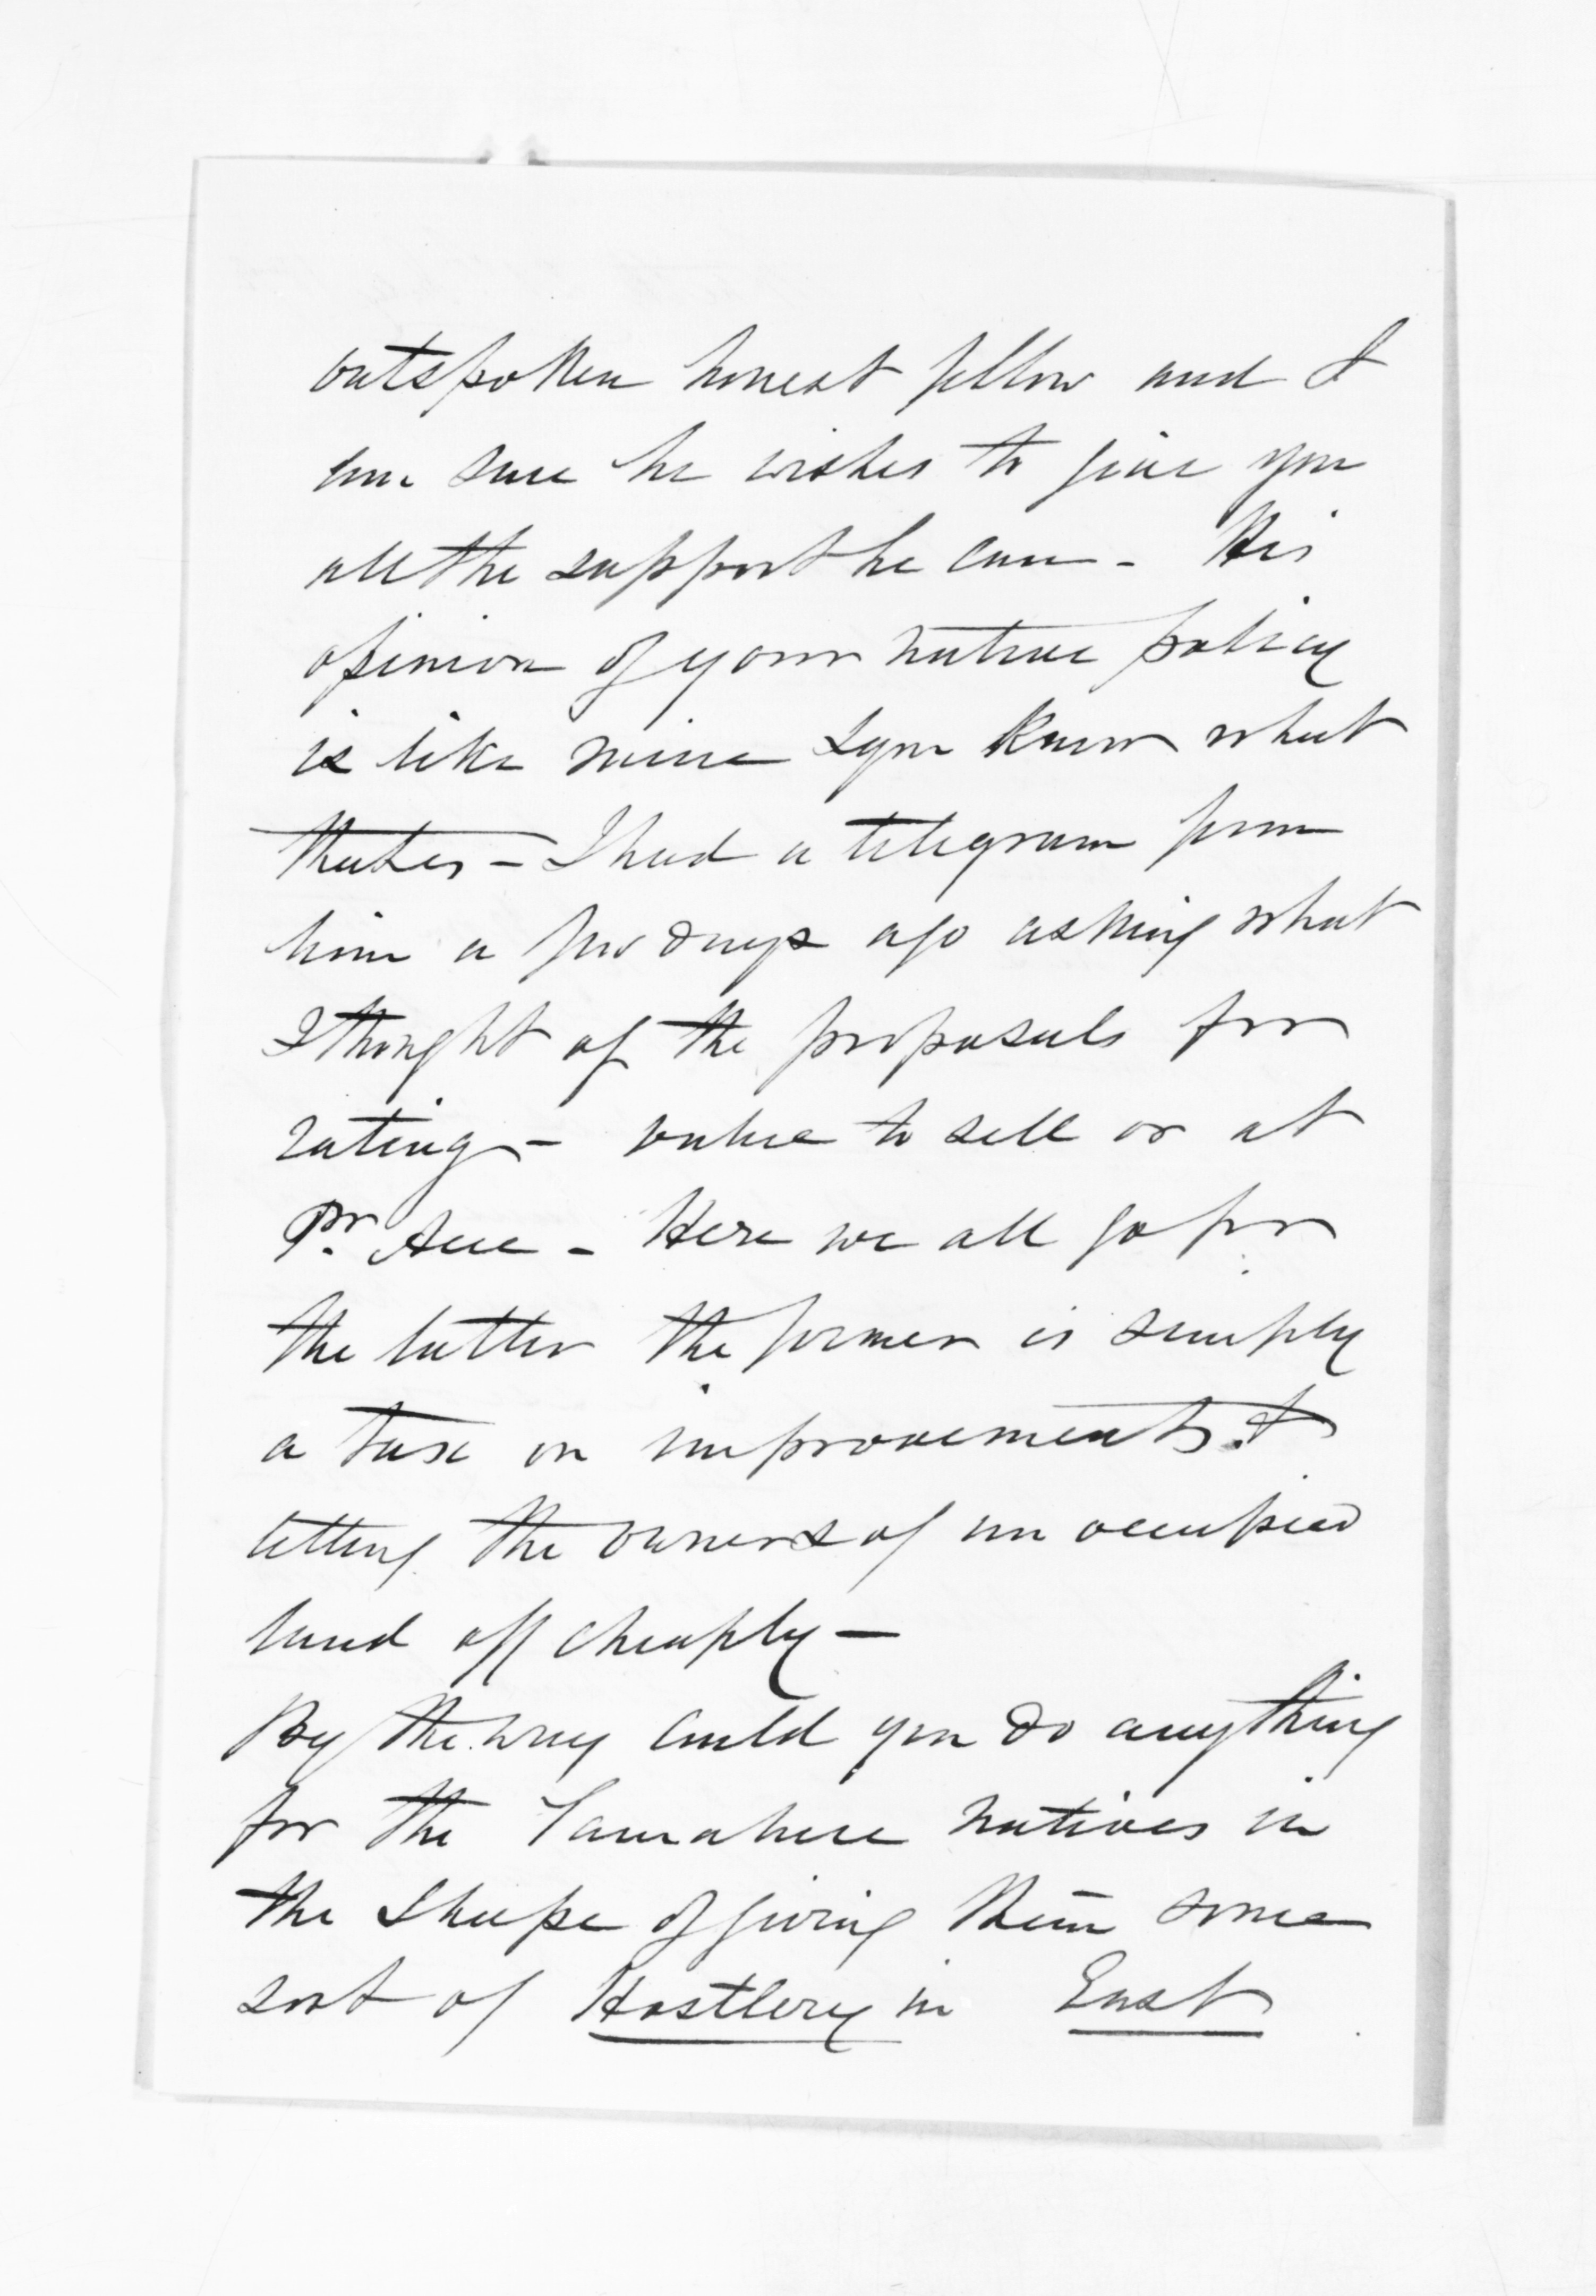 outspoken honest fellow and I
am sure he wishes to give you
all the support he can - His
opinion of your native policy
is like mine & you know what
that is - I had a telegram from
him a few days ago asking what
I thought of the proposals for
rating - value to sell or at
Pr Acre - Here we all go for
the latter the former is simply
a tax on improvements &
letting the owners of un occupied
land off cheaply -
By the way could you do anything
for the Tamahere natives in
the shape of giving them some
sort of Hostlery in East